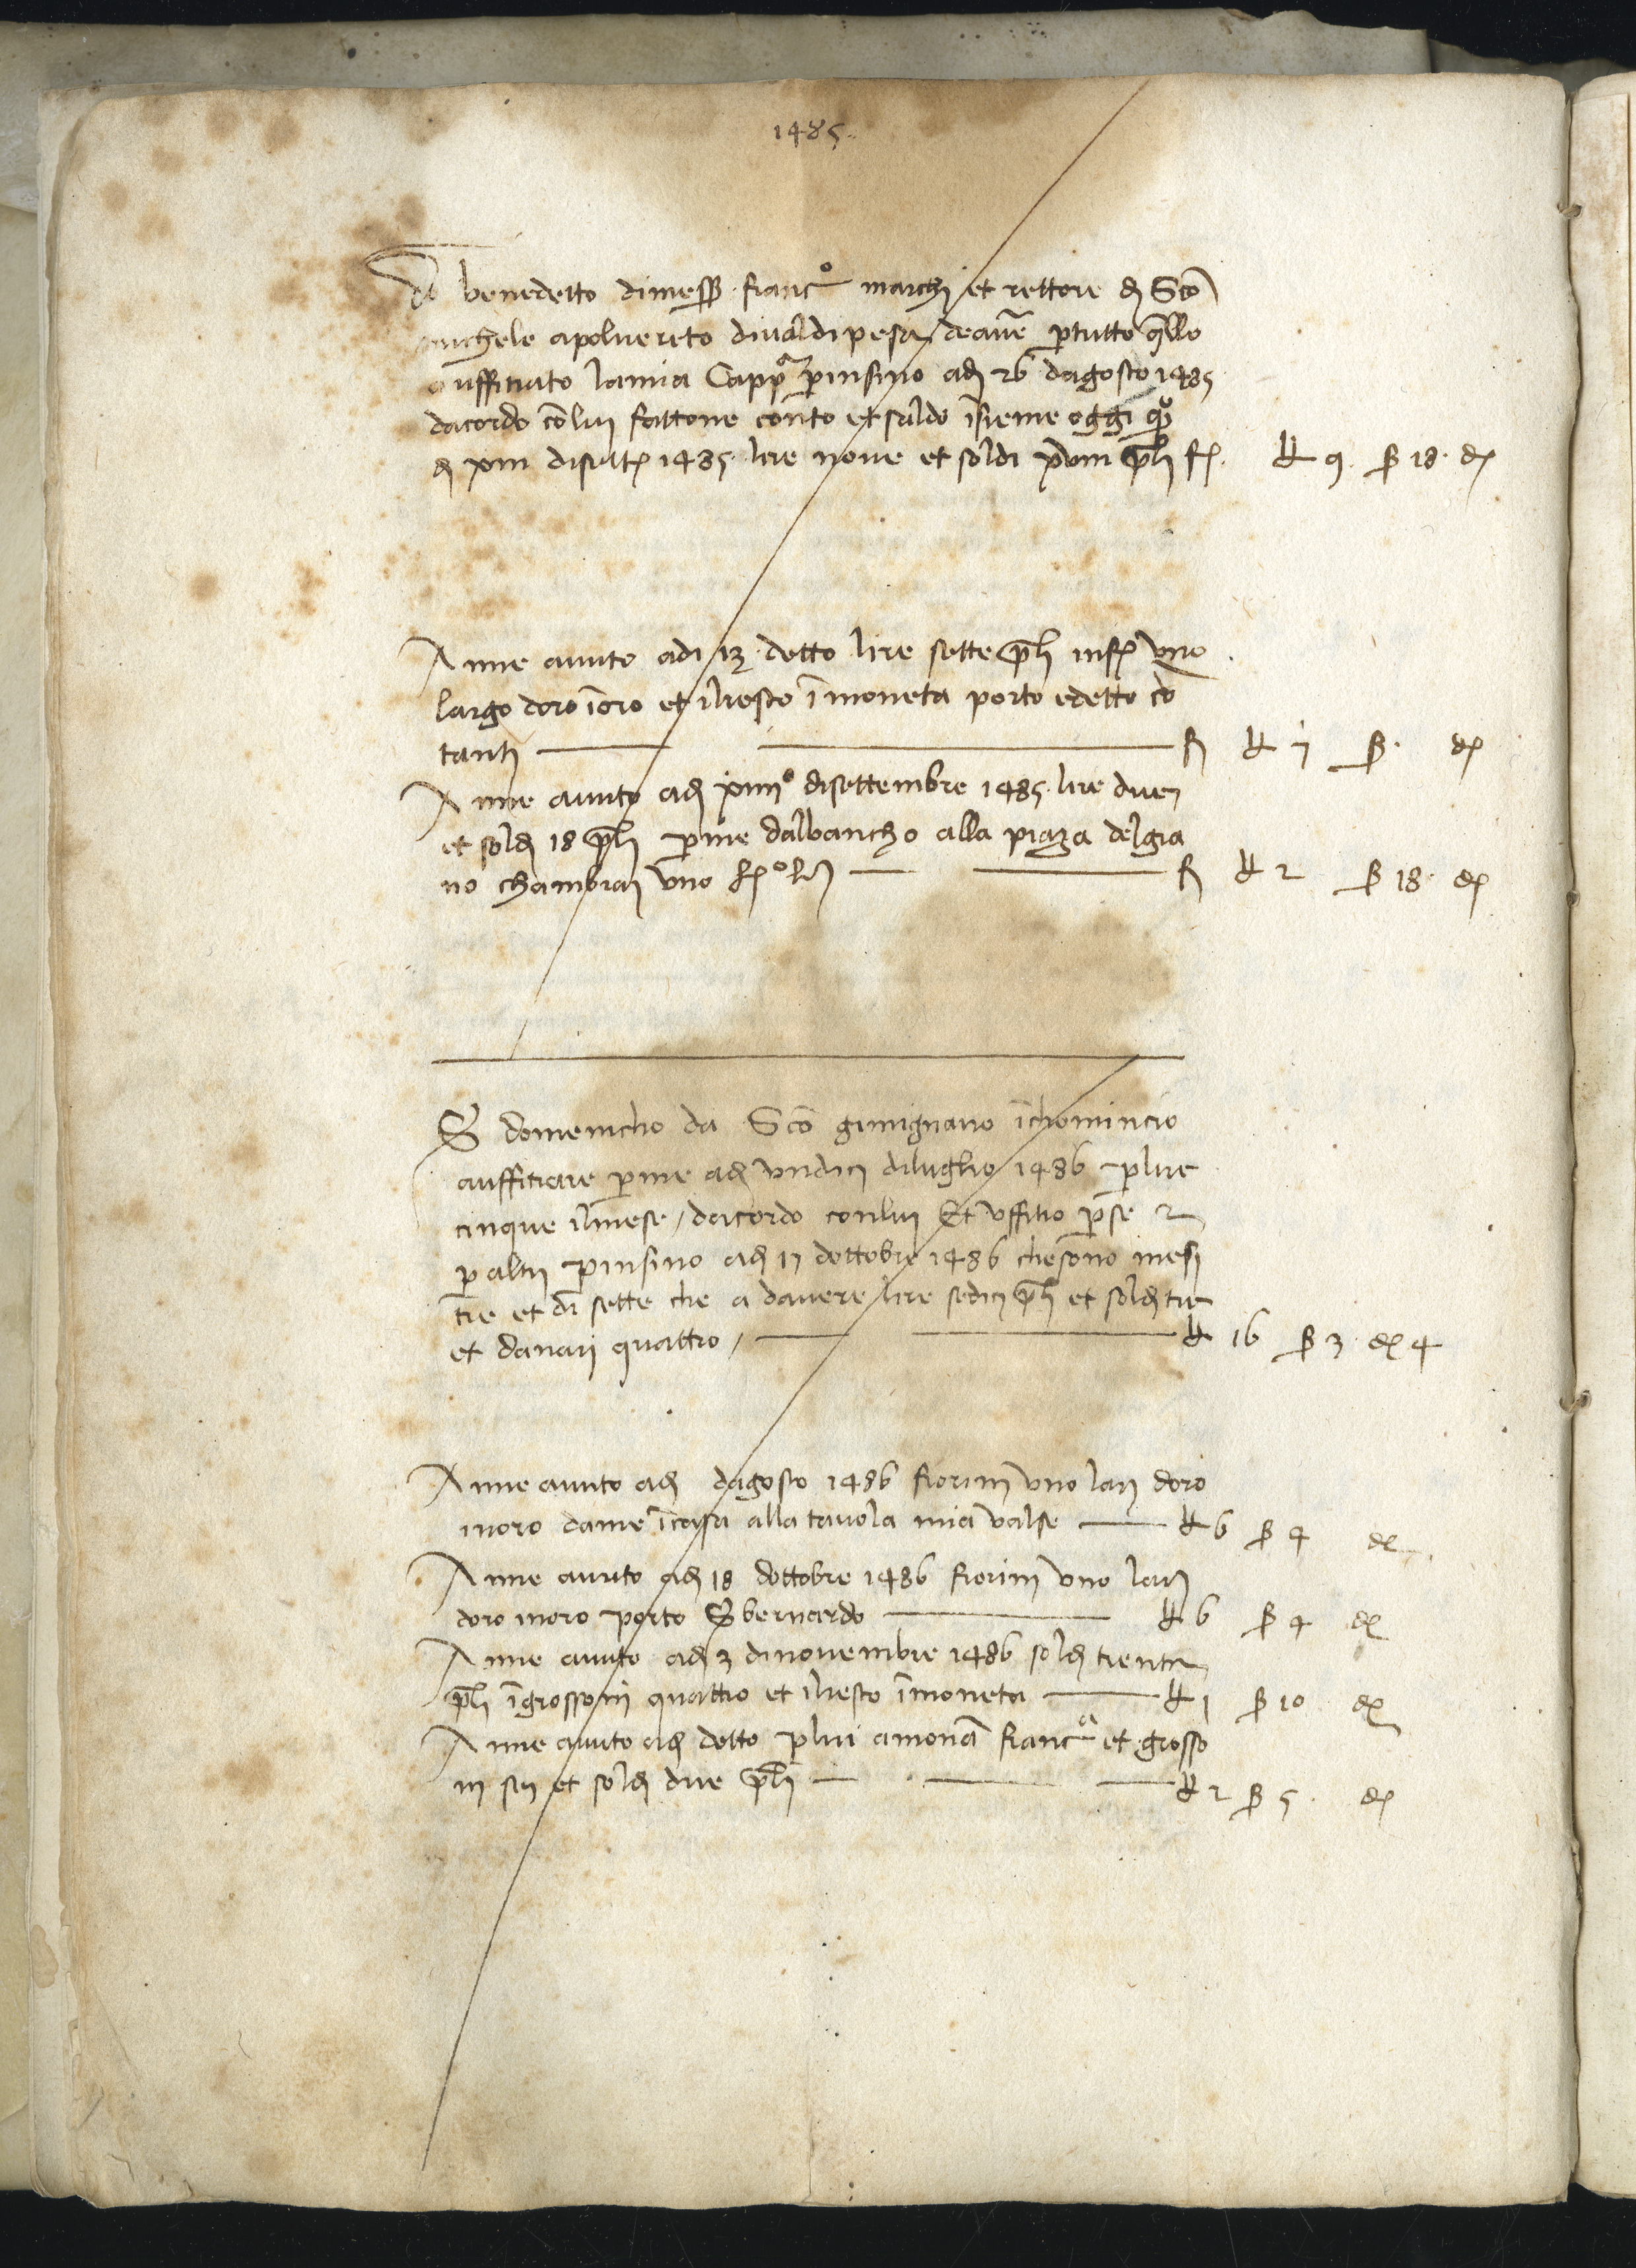 1485.
Do benedetto dimess. franc.º marchi et rettore di Sco
michele apoluereto divaldipesa de aue ptutto qllo
a uffitiato lamia Capp.ª pinsino adi 26 dagosto 1485
dacordo co lui fattone conto et saldo isieme oggi qº
di xiii disett. 1485. lire noue et soldi xviii pli f. ₤ 9. ß 18. d
Anne auuto adi 13 detto lire sette pli inf. uno
largo doro ioro et ilresto i moneta porto e detto co
tanti f. ₤ 7 ß. d
Anne auuto adi xiiiiº disettembre 1485. lire due
et soldi 18 pli p me dalbancho alla piaza delgra
no chambiai uno f.º l. f. ₤ 2 ß 18. d
S domenicho da Sco gimignano ichomincio
auffitiare p me adi undici diluglio 1486 p lire
cinque ilmese / dacordo conlui Et uffitio p se 2
p altri pinsino adi 17 dottobre 1486 che sono mesi
tre et di sette che a dauere lire sedici pli et soldi tre
et danari quattro / ₤ 16 ß 3 d 4
Anne auuto adi dagosto 1486 fiorini uno lar. doro
inoro dame i casa alla tauola mia ualse ₤ 6 ß 4 d
Anne auuto adi 18 dottobre 1486 fiorini uno lar.
doro inoro porto S bernardo ₤ 6 ß 4 d
Anne auuto adi 3 dinouembre 1486 soldi trenta
pli i grossoni quattro et ilresto i moneta ₤ 1 ß 10 d
Anne auuto adi detto p lui a mona franc.ª et grosso
ni sei et soldi due pli ₤ 2 ß 5. d